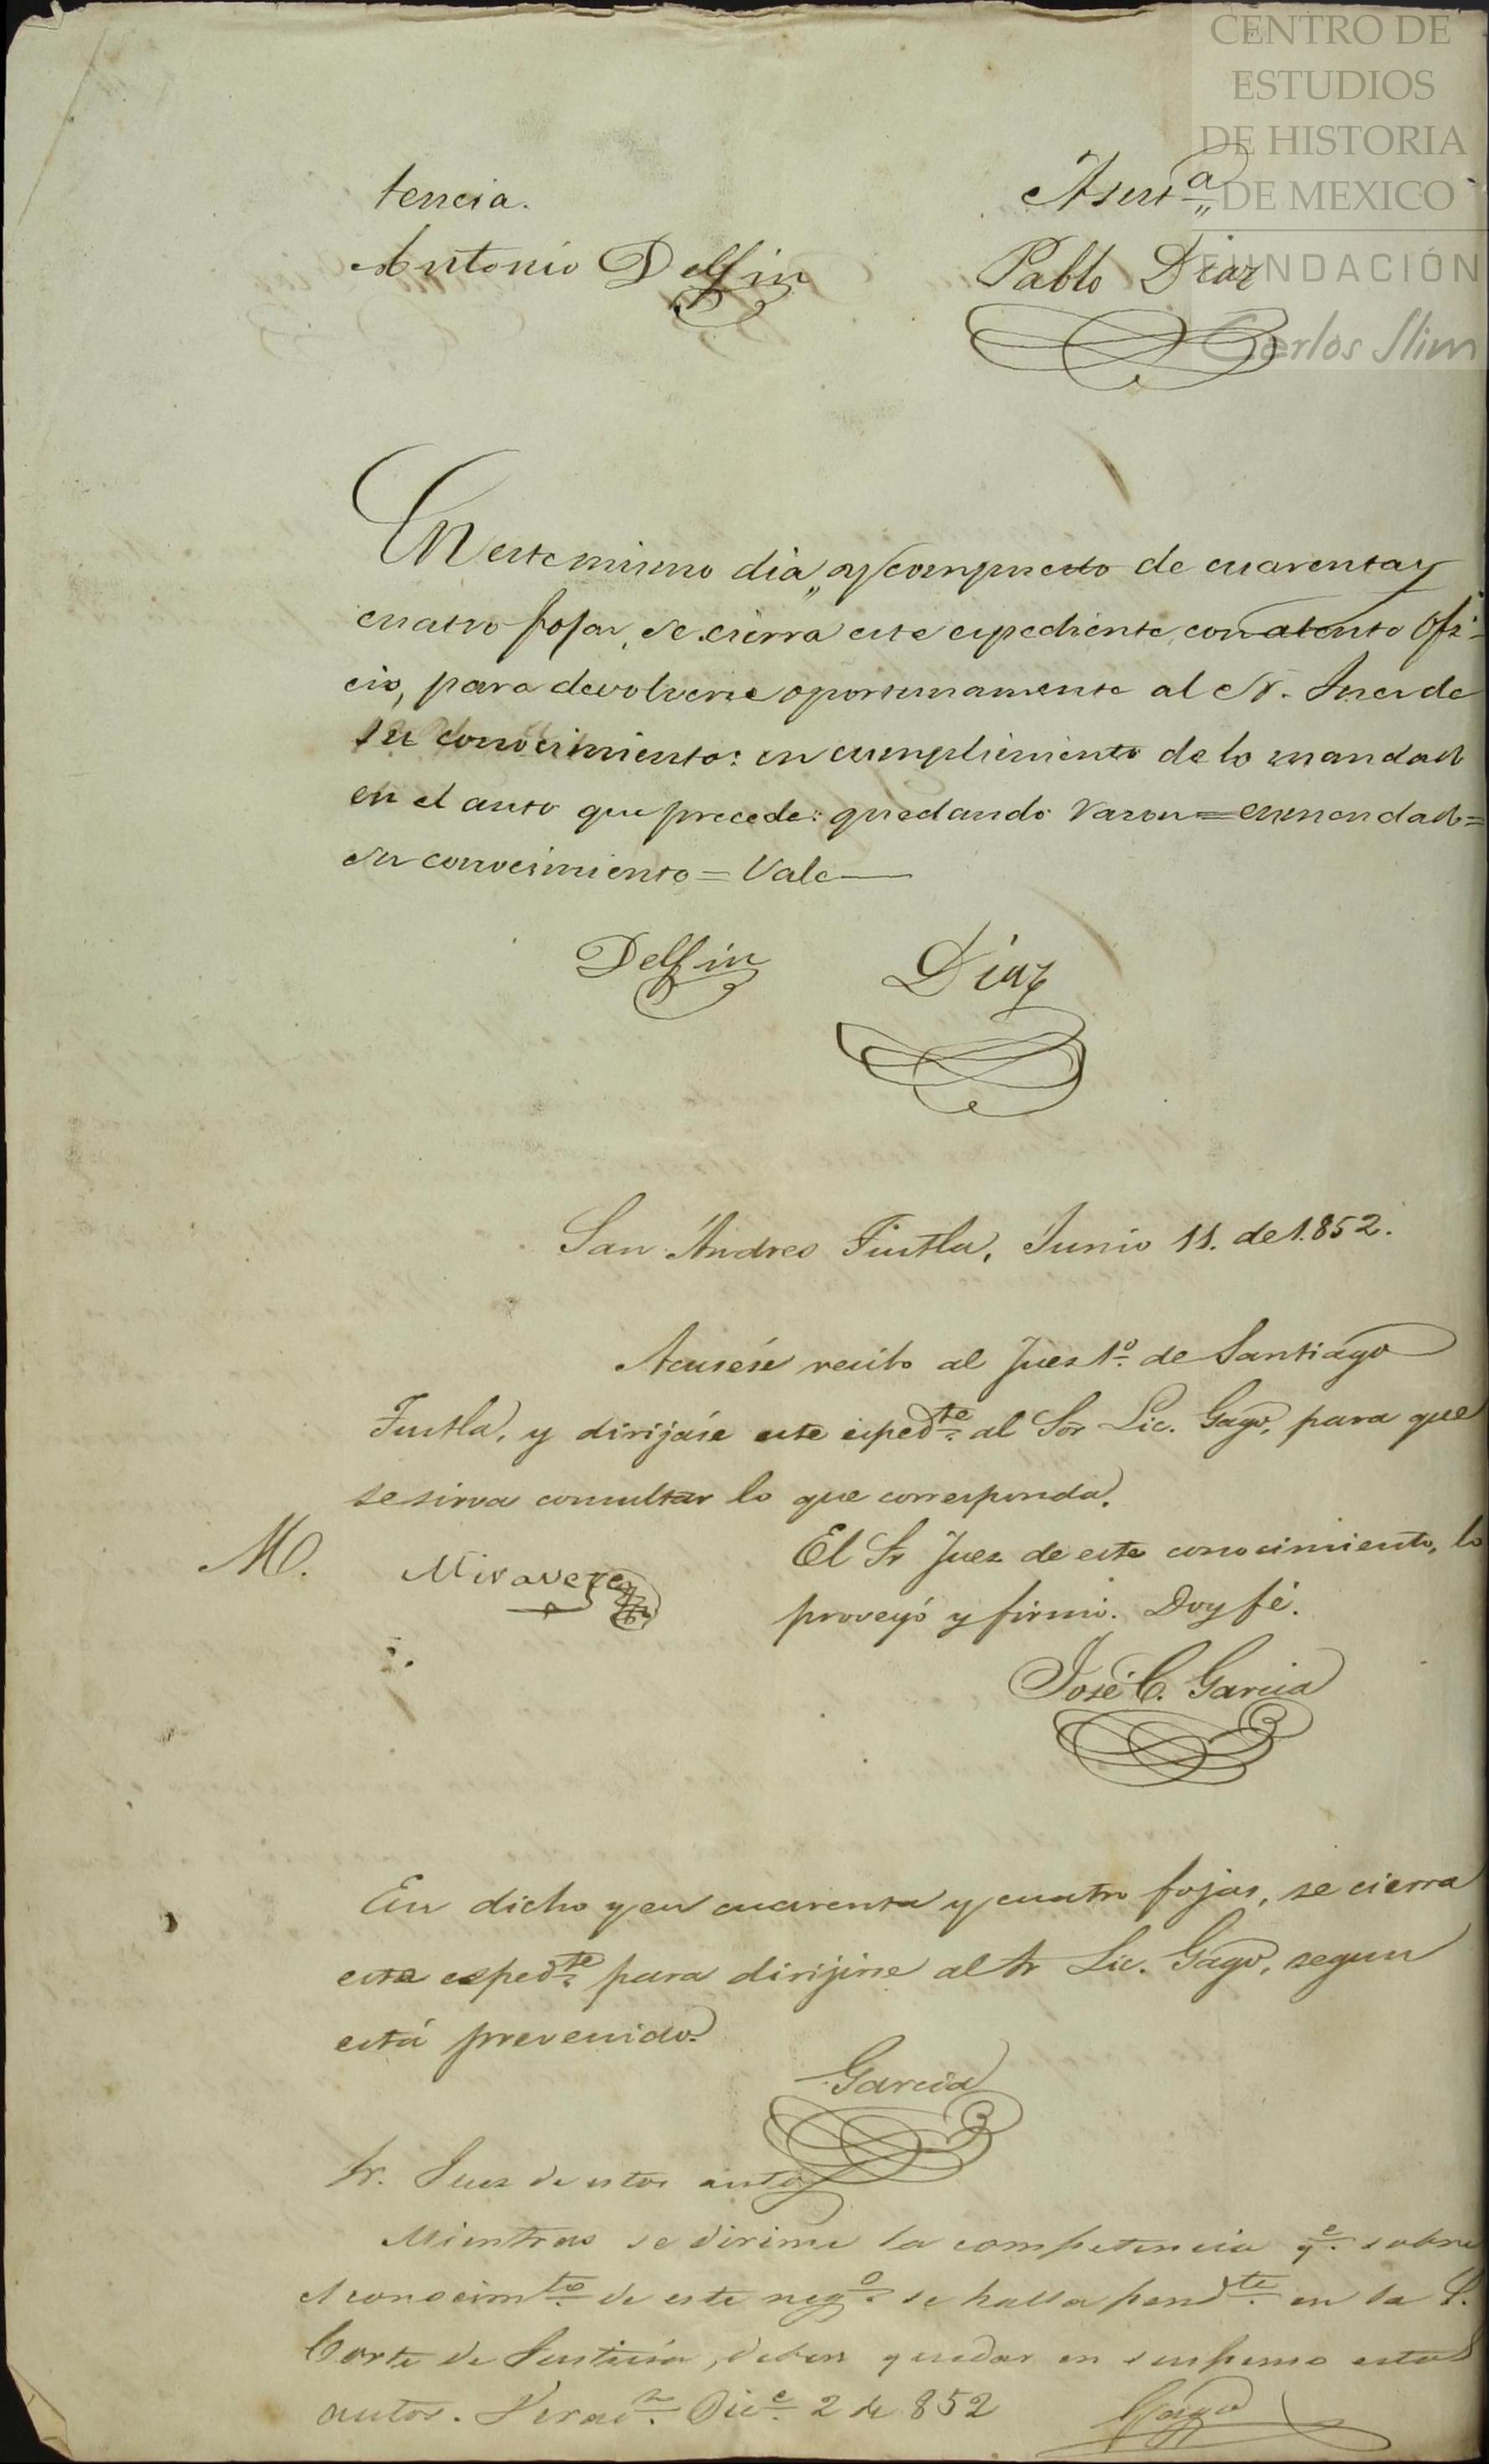 CENTRO DE
ESTUDIOS
DE HISTORIA
DE MEXICO
FUNDACIÓN
Carlos Slim
tencia.
Antonio Delfin
Asist.a
Pablo Diaz
En este mismo dia, y compuesto de cuarenta y
cuatro fojas, se cierra este espediente, con atento Ofi-
cio, para devolverse oportunamente al Sr. Juez de
su conocimiento: en cumplimiento de lo mandado
en el auto que precede: quedando razon = enmendado =
su conocimiento = Vale —
Delfin
Diaz
San Andres Tuxtla, Junio 11. de 1.852.
Acusese recibo al Juez 1º de Santiago
Tuxtla, y dirijase este esped.te al Sor Lic. Gago, para que
se sirva consultar lo que corresponda.
M. Miravete
El Sr Juez de este conocimiento, lo
proveyó y firmó. Doy fé.
José C. Garcia
En dicho y en cuarenta y cuatro fojas, se cierra
este esped.te para dirijirse al Sr Lic. Gago, segun
está prevenido.
Garcia
Sr. Juez de estos autos
Mientras se dirime la competencia q.e sobre
el conocim.to de este neg.o se halla pend.te en la S.
Corte de Justicia, deben quedar en suspenso estos
autos. Verac.z Dic.e 2 de 852
Gago